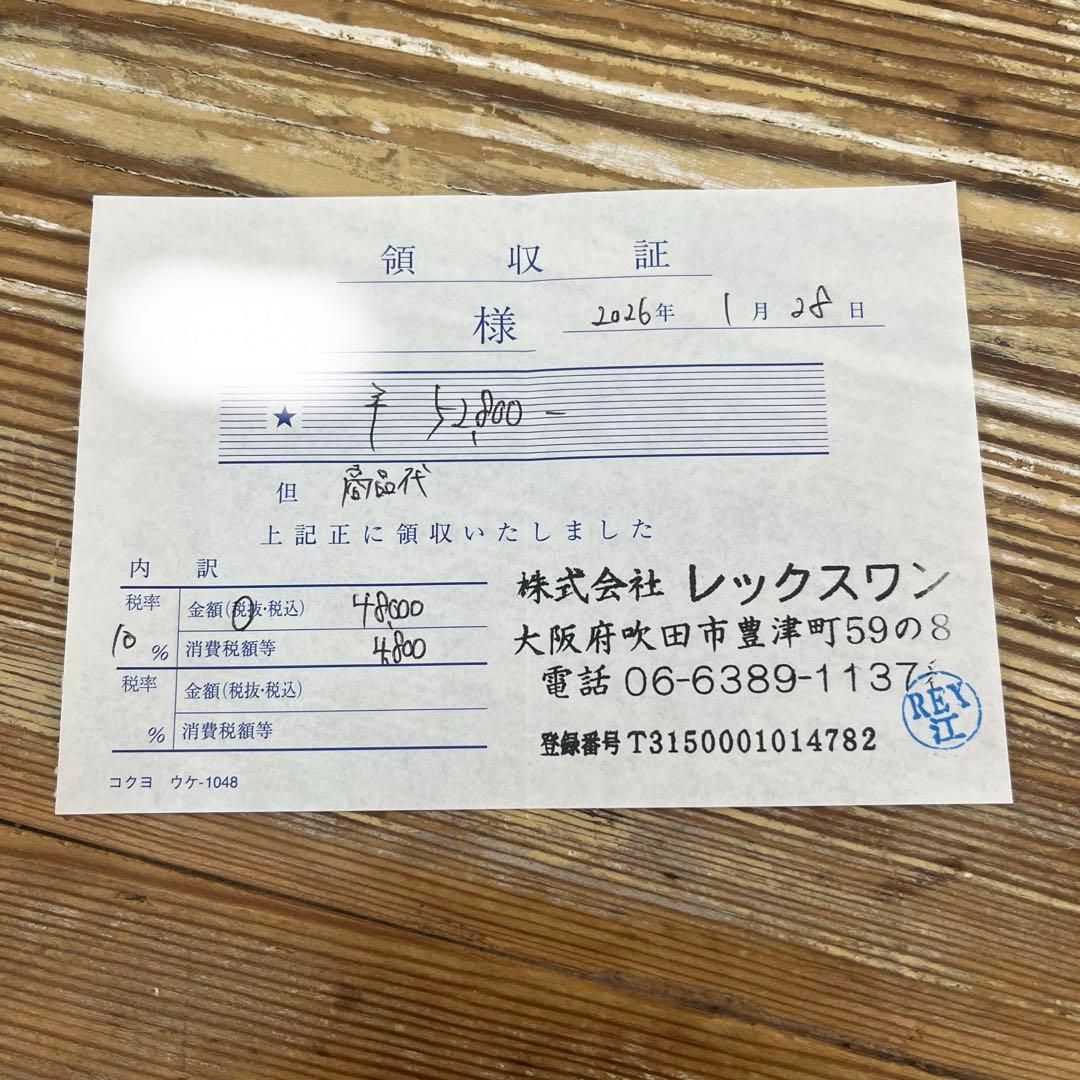 領収証
様 2026年 1月 28日
★ ¥ 52,800-
但 商品代
上記正に領収いたしました
内訳
税率 10 %
金額(税抜・税込) 48,000
消費税額等 4,800
税率 %
金額(税抜・税込)
消費税額等
コクヨ ウケ-1048
株式会社 レックスワン
大阪府吹田市豊津町59の8
電話 06-6389-1137
登録番号 T3150001014782
REY
江